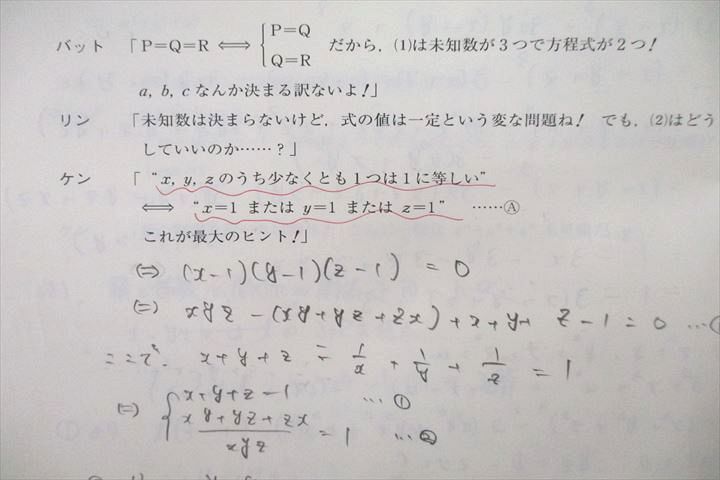 バット 「P=Q=R ⟺ { P=Q Q=R だから，(1)は未知数が３つで方程式が２つ！
a, b, c なんか決まる訳ないよ！」
リン 「未知数は決まらないけど，式の値は一定という変な問題ね！ でも，(2)はどう
していいのか……？」
ケン 「“x, y, z のうち少なくとも１つは１に等しい”
⟺ “x=1 または y=1 または z=1” ……Ⓐ
これが最大のヒント！」
(=) (x-1)(y-1)(z-1) = 0
(=) xyz - (xy+yz+zx) + x+y+ z-1 = 0 …
ここで、 x+y+z = 1/x + 1/y + 1/z = 1
(=) { x+y+z-1 …①
xy+yz+zx / xyz = 1 …②